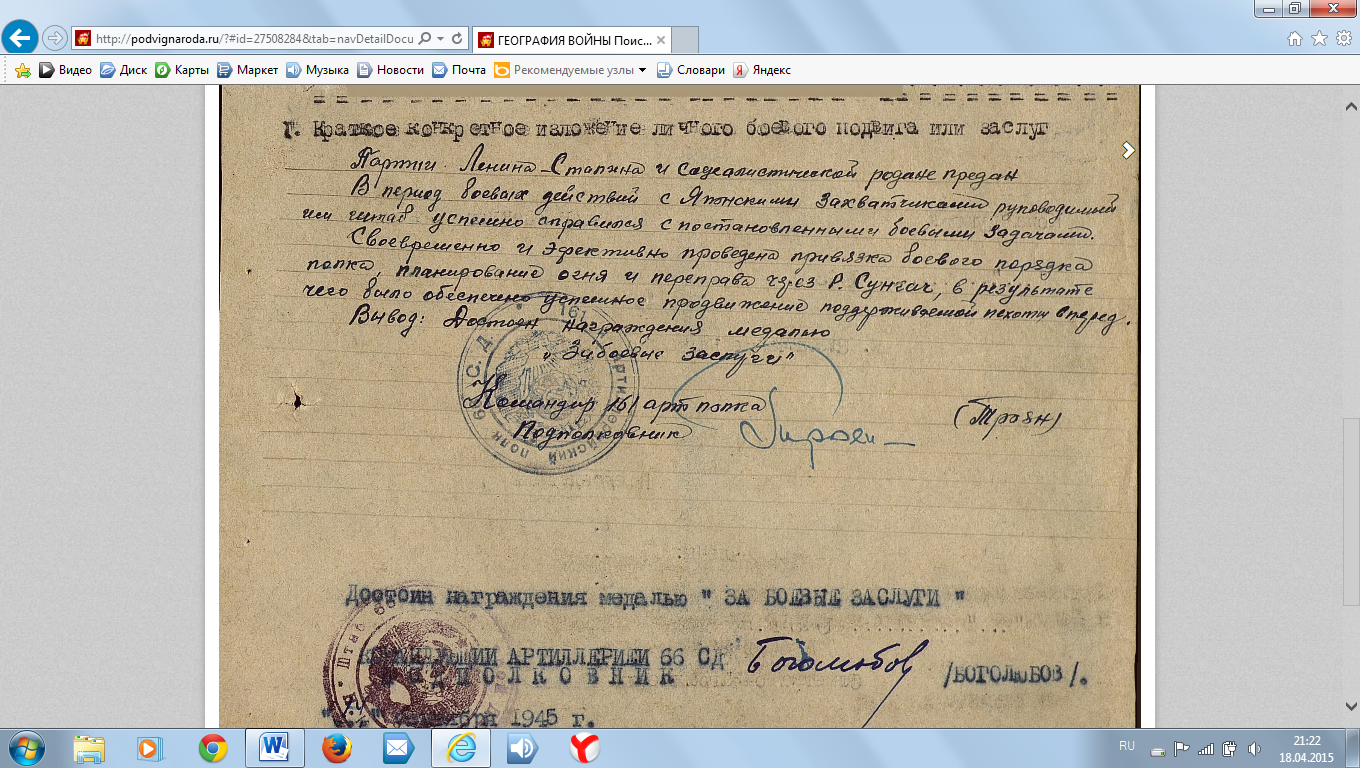 http://podvignaroda.ru/?#id=27508284&tab=navDetailDocu
ГЕОГРАФИЯ ВОЙНЫ Поис...
Видео Диск Карты Маркет Музыка Новости Почта Рекомендуемые узлы Словари Яндекс
Г. Краткое конкретное изложение личного боевого подвига или заслуг
Партии Ленина-Сталина и социалистической родине предан
В период боевых действий с Японскими Захватчиками руководимый
им штаб успешно справился с постановленными боевыми Задачами.
Своевременно и эфективно проведена привязка боевого порядка
полка, планирование огня и переправа через Р. Сунгач, в результате
чего было обеспечено успешное продвижение поддерживаемой пехоты вперед.
Вывод: Достоен награждения медалью
„За боевые заслуги"
Командир 161 арт полка
Подполковник
(Троян)
Достоин награждения медалью " ЗА БОЕВЫЕ ЗАСЛУГИ "
КОМАНДУЮЩИЙ АРТИЛЛЕРИЕЙ 66 СД
Боголюбов
/БОГОЛЮБОВ/.
ПОДПОЛКОВНИК
1945 г.
Штаб
RU
21:22
18.04.2015